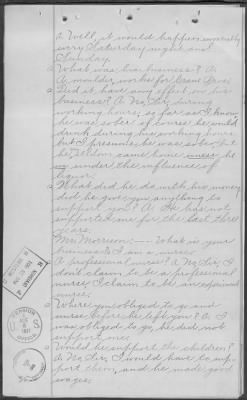 a Well, it would happen mostly
every Saturday night and
Sunday.
Q What was his business? A
A moulder, works for Grant Bros.
Q Did it have any effect on his
business? A No Sir, during
working hours, as far as I know
he was sober of course he would
drink during his working hours.
but I presume he was sober but
he seldom came home unless he
was under the influence of
liquor.
Q What did he do with his money
did he give you anything to
support you? A He has not
supported me for the last three
years.
Mr Morrison:— What is your
business? I am a nurse
Q A professional nurse? A No Sir, I
don't claim to be a professional
nurse, I claim to be an experienced
nurse.
Q Were you obliged to go and
nurse before he left you? A I
was obliged to go, he did not
support me.
Q Would he support the children?
A No Sir, I would have to sup-
port them, and he made good
wages.
PENSION
U S
OFFICE